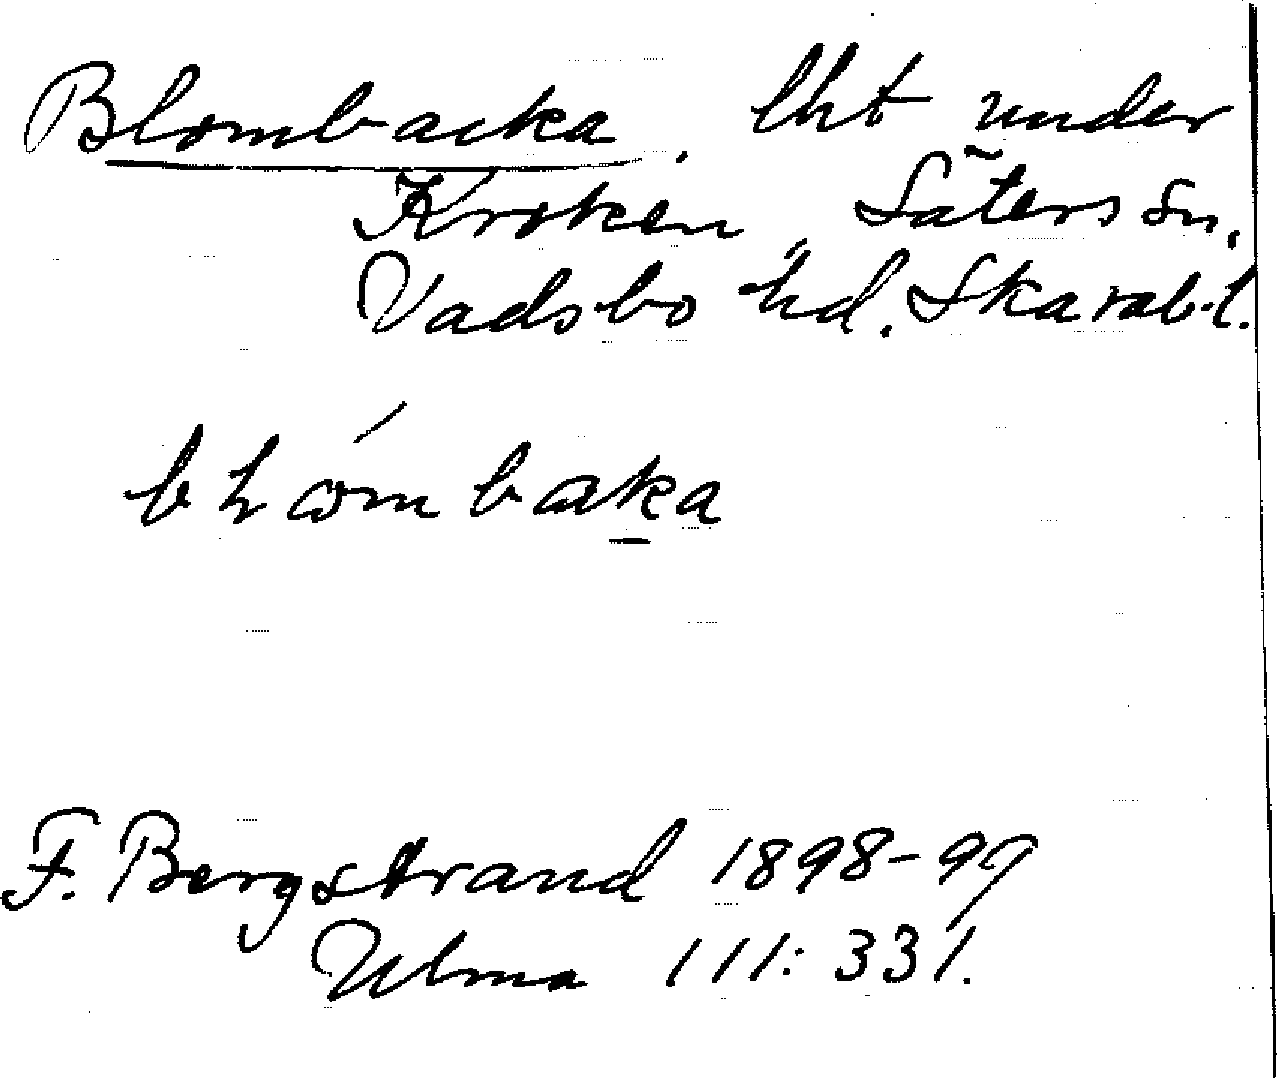 Blombacka. lht under
Kroken, Säters sn,
Vadsbo hd. Skarab.l.
bɫómbaka
F. Bergstrand 1898-99
Ulma 111:331.